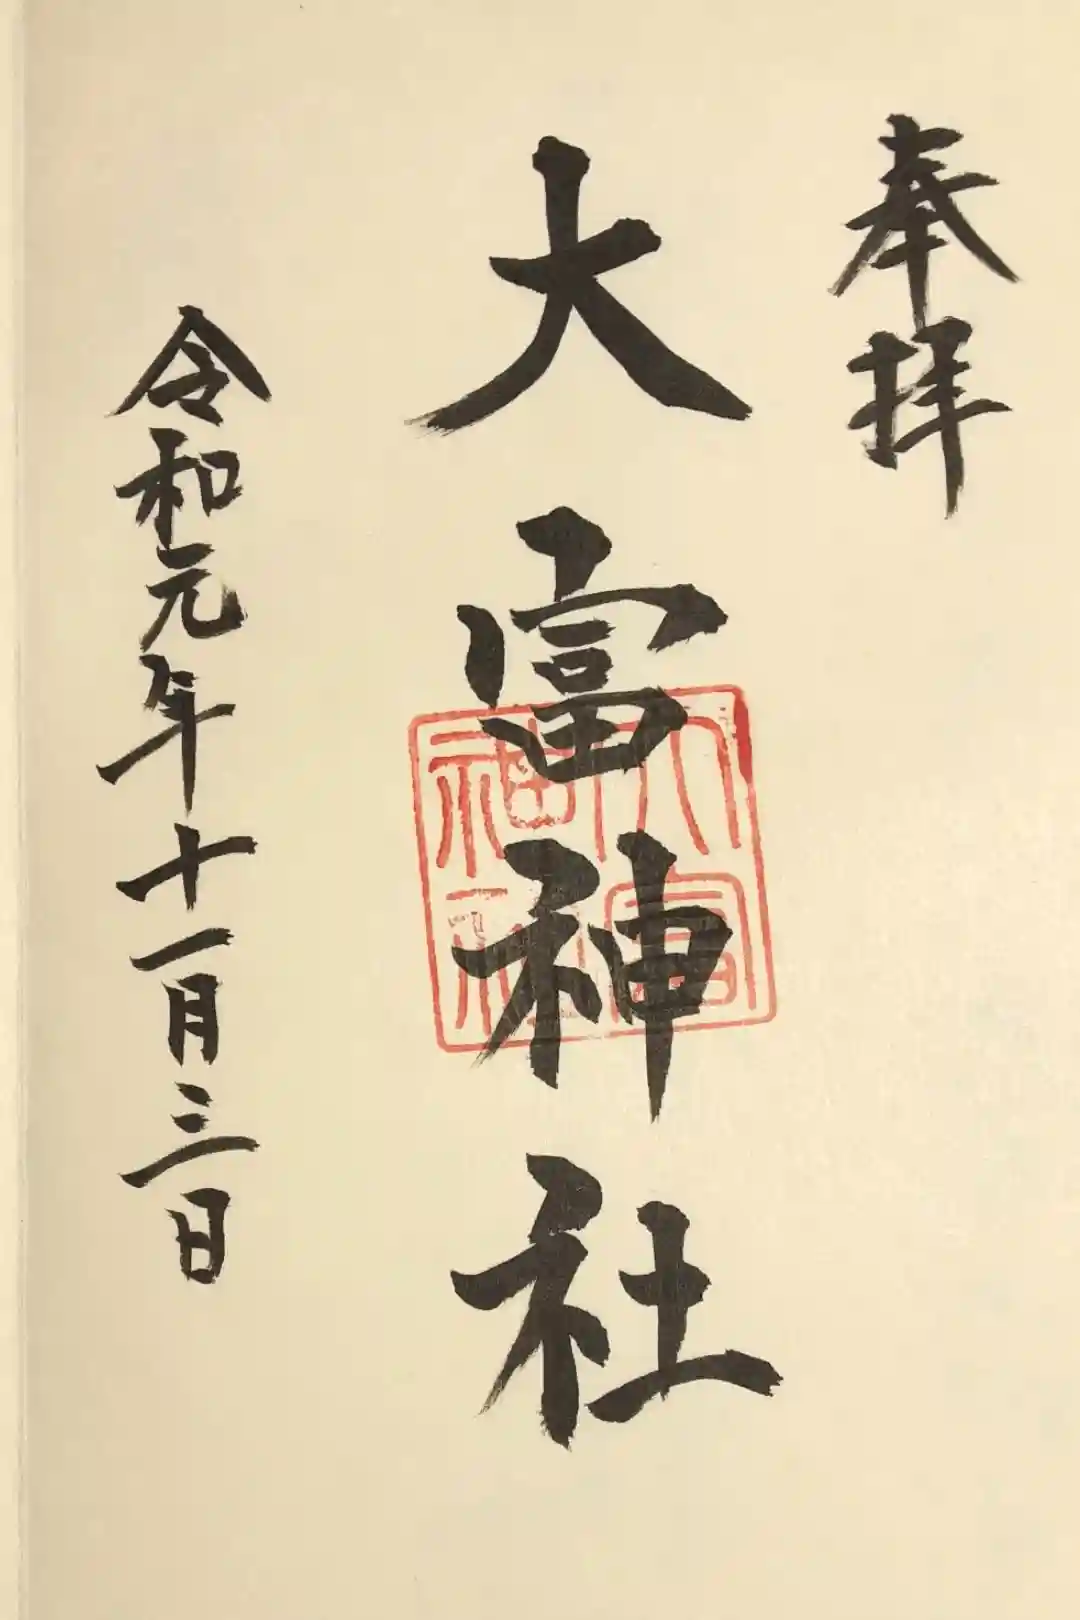 奉拝
大富神社
大富神社
令和元年十一月三日